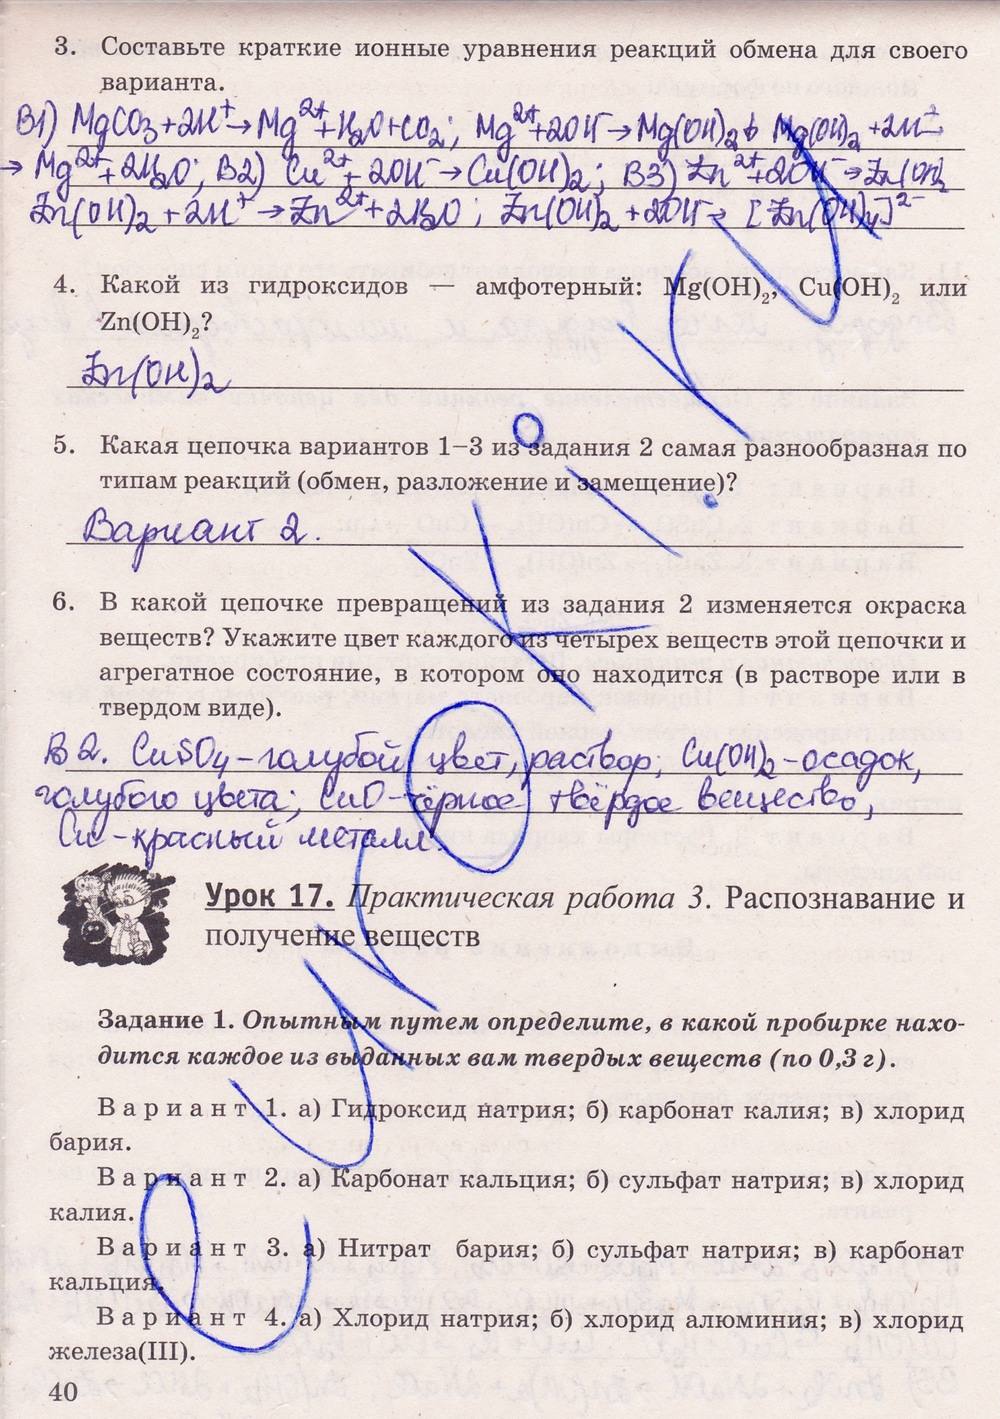 3. Составьте краткие ионные уравнения реакций обмена для своего
варианта.
В1) MgCO₃+2H⁺→Mg²⁺+H₂O+CO₂; Mg²⁺+2OH⁻→Mg(OH)₂↓ Mg(OH)₂+2H⁺
→ Mg²⁺+2H₂O; В2) Cu²⁺+2OH⁻→Cu(OH)₂; В3) Zn²⁺+2OH⁻→Zn(OH)₂
Zn(OH)₂+2H⁺→Zn²⁺+2H₂O; Zn(OH)₂+2OH⁻→ [Zn(OH)₄]²⁻
4. Какой из гидроксидов — амфотерный: Mg(OH)₂, Cu(OH)₂ или
Zn(OH)₂?
Zn(OH)₂
5. Какая цепочка вариантов 1–3 из задания 2 самая разнообразная по
типам реакций (обмен, разложение и замещение)?
Вариант 2.
6. В какой цепочке превращений из задания 2 изменяется окраска
веществ? Укажите цвет каждого из четырех веществ этой цепочки и
агрегатное состояние, в котором оно находится (в растворе или в
твердом виде).
В2. CuSO₄-голубой цвет, раствор; Cu(OH)₂-осадок,
голубого цвета; CuO-чёрное твёрдое вещество,
Cu-красный металл.
Урок 17. Практическая работа 3. Распознавание и
получение веществ
Задание 1. Опытным путем определите, в какой пробирке нахо-
дится каждое из выданных вам твердых веществ (по 0,3 г).
Вариант 1. а) Гидроксид натрия; б) карбонат калия; в) хлорид
бария.
Вариант 2. а) Карбонат кальция; б) сульфат натрия; в) хлорид
калия.
Вариант 3. а) Нитрат бария; б) сульфат натрия; в) карбонат
кальция.
Вариант 4. а) Хлорид натрия; б) хлорид алюминия; в) хлорид
железа(III).
40